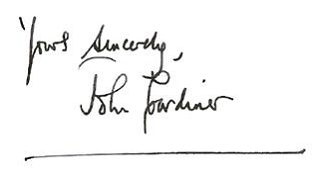 Yours Sincerely,
John Gardiner